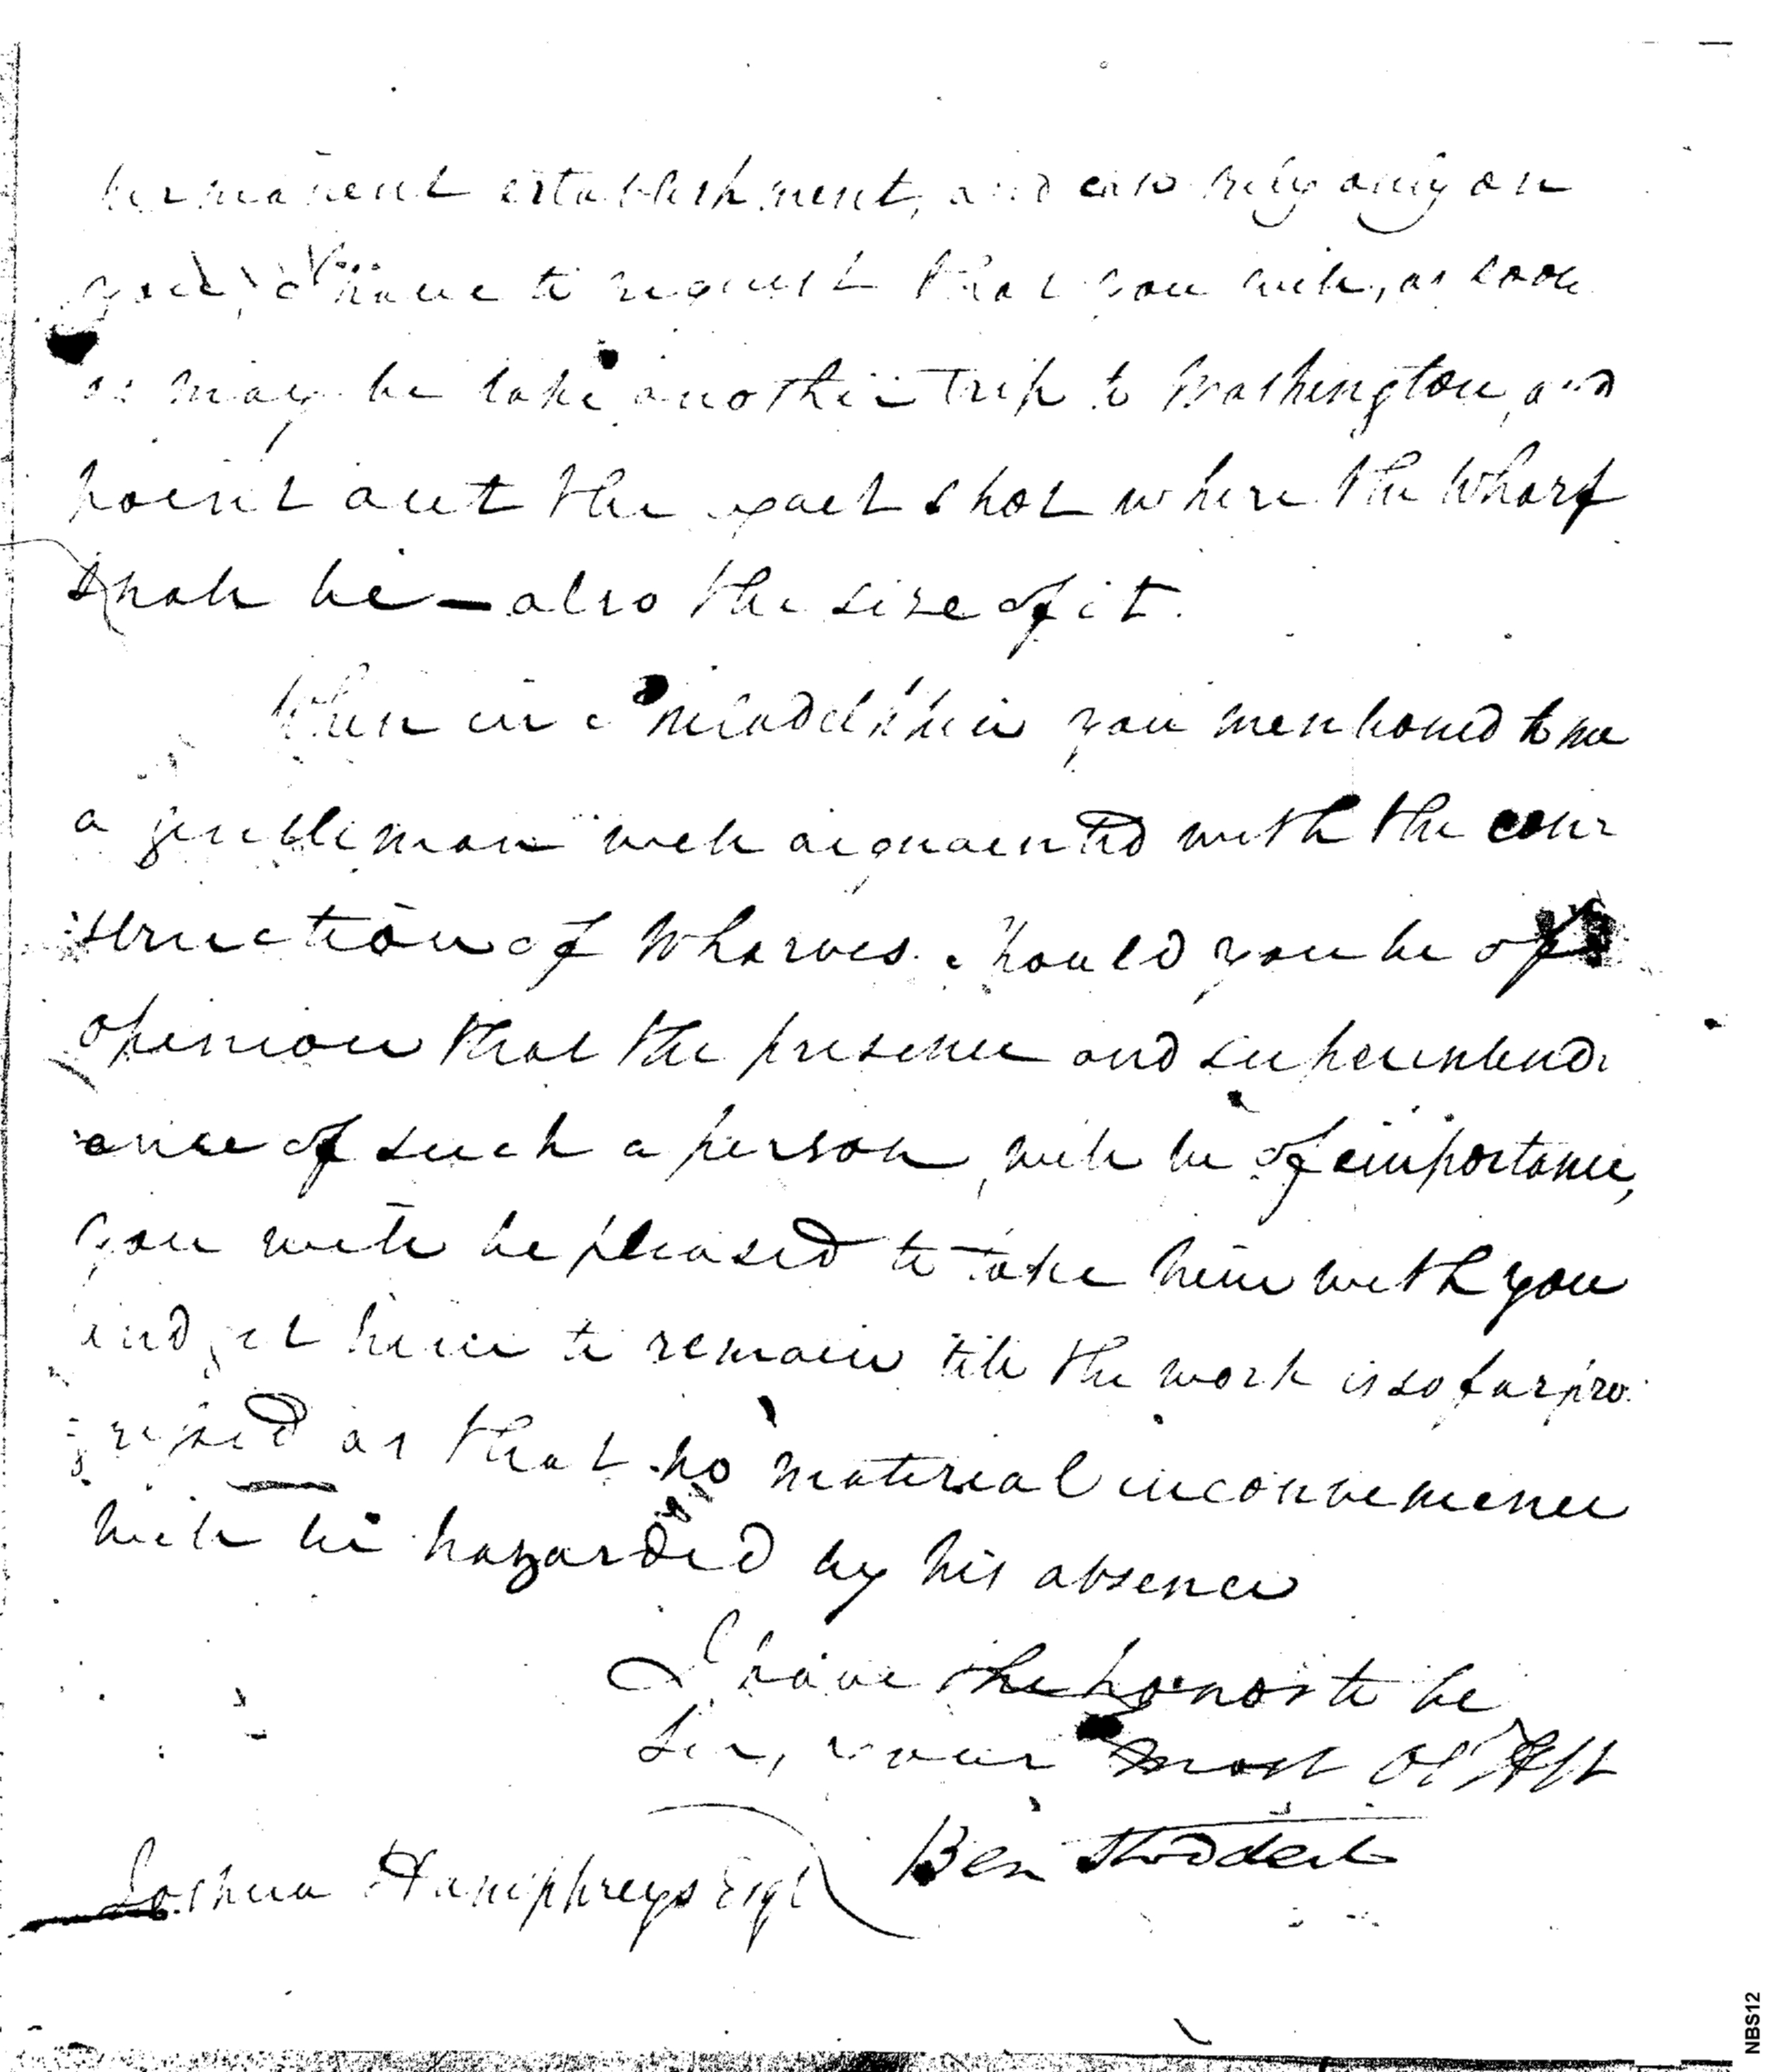 permanent establishment, and can rely only on
you, I have to request that you will, as soon
as may be take another trip to Washington, and
point out the exact spot where the Wharf
shall be — also the size of it.
When in Philadelphia you mentioned to me
a gentleman well acquainted with the con
struction of Wharves. Should you be of
opinion that the presence and superintend
ance of such a person, will be of importance,
you will be pleased to take him with you
and get him to remain till the work is so far pro
gressed as that no material inconvenience
will be hazarded by his absence
I have the honor to be
Sir, your most Ob
Ben Stoddert
Joshua Humphreys Esqr
NBS12